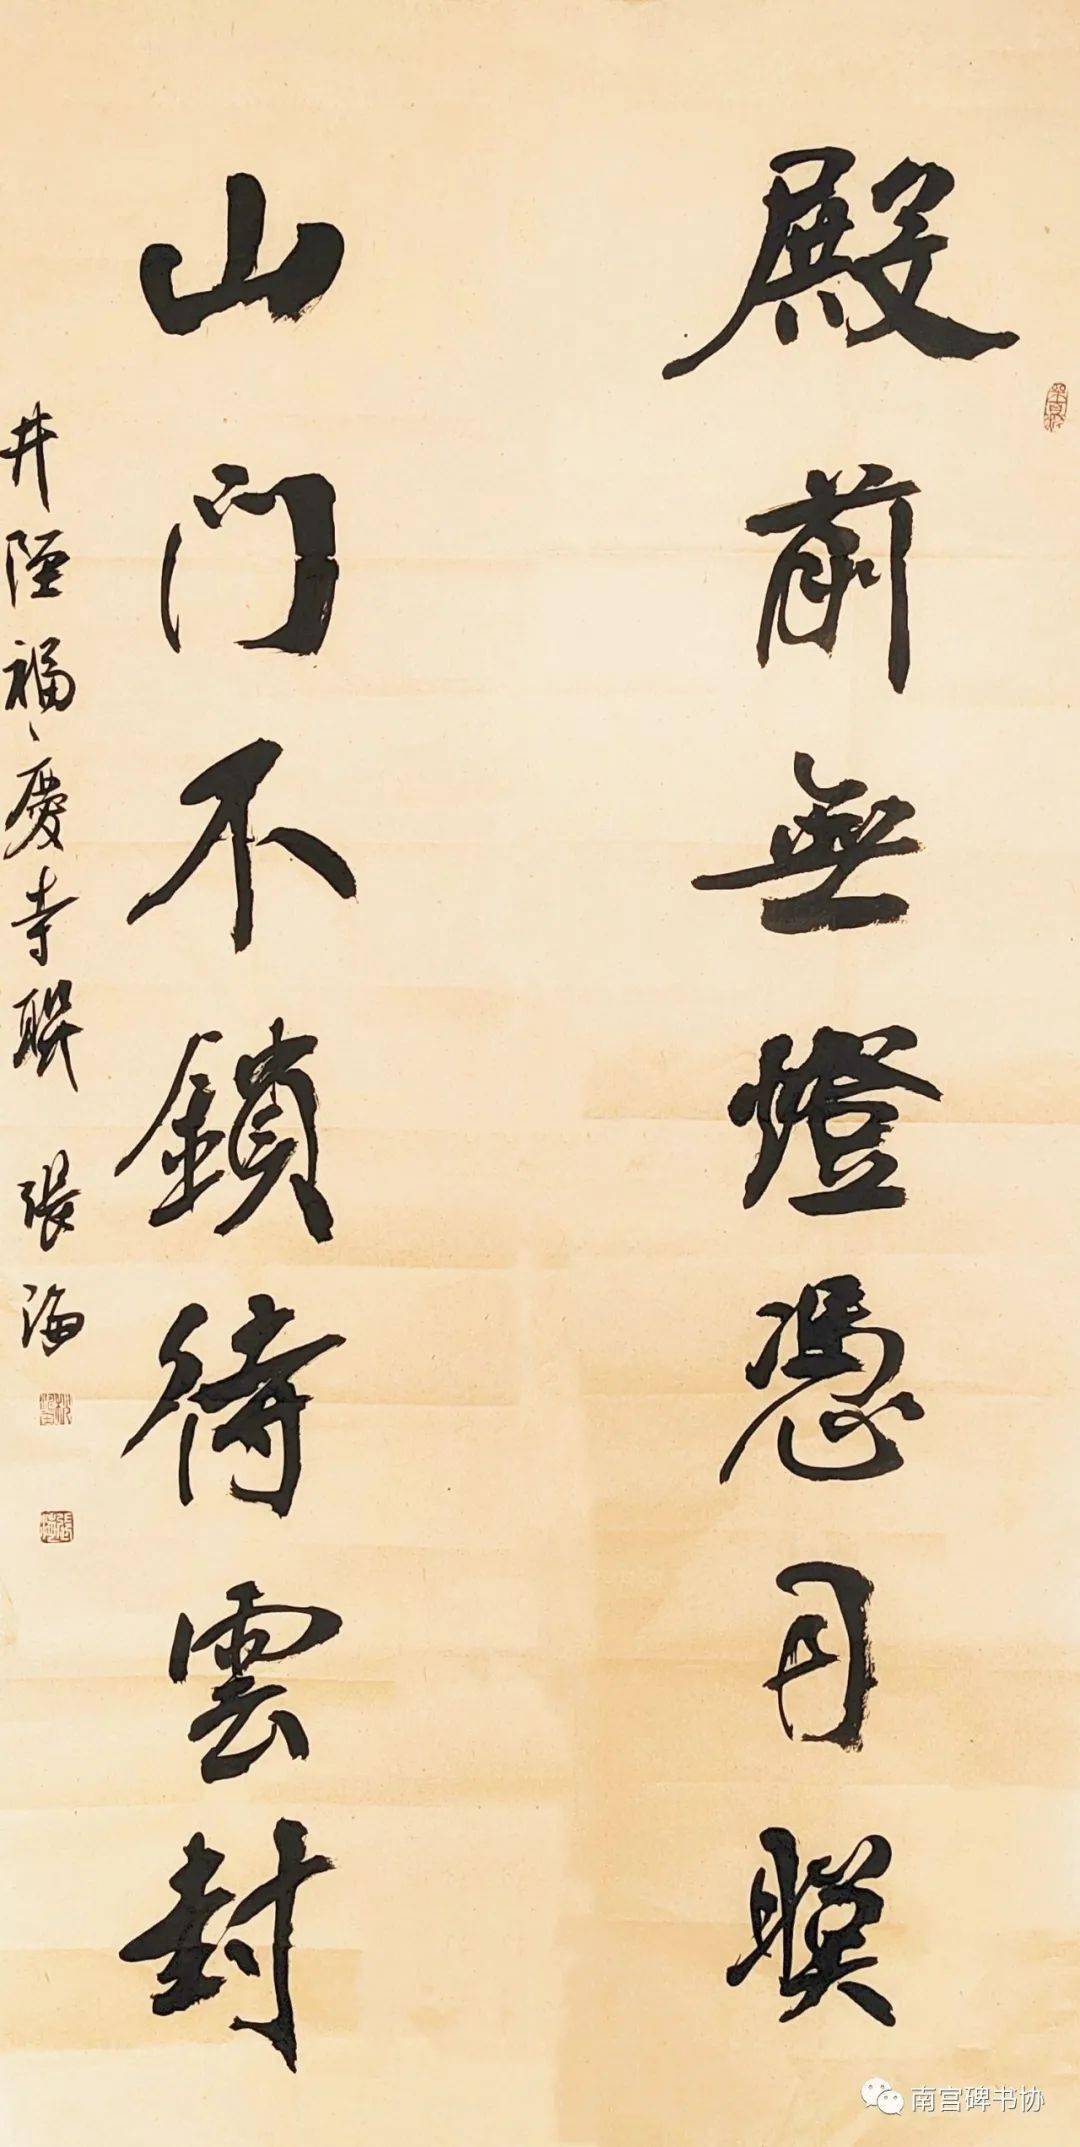 殿前無燈憑月暎
山門不鎖待雲封
井陘福慶寺聯 張海
張海
南宫碑书协